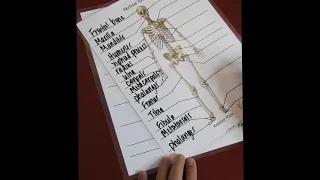 Frontal bone
Maxilla
Mandible
Humerus
xiphoid process
radius
ulna
carpals
Metacarpals
phalanges
Femur
Tibia
Fibula
Metatarsals
phalanges